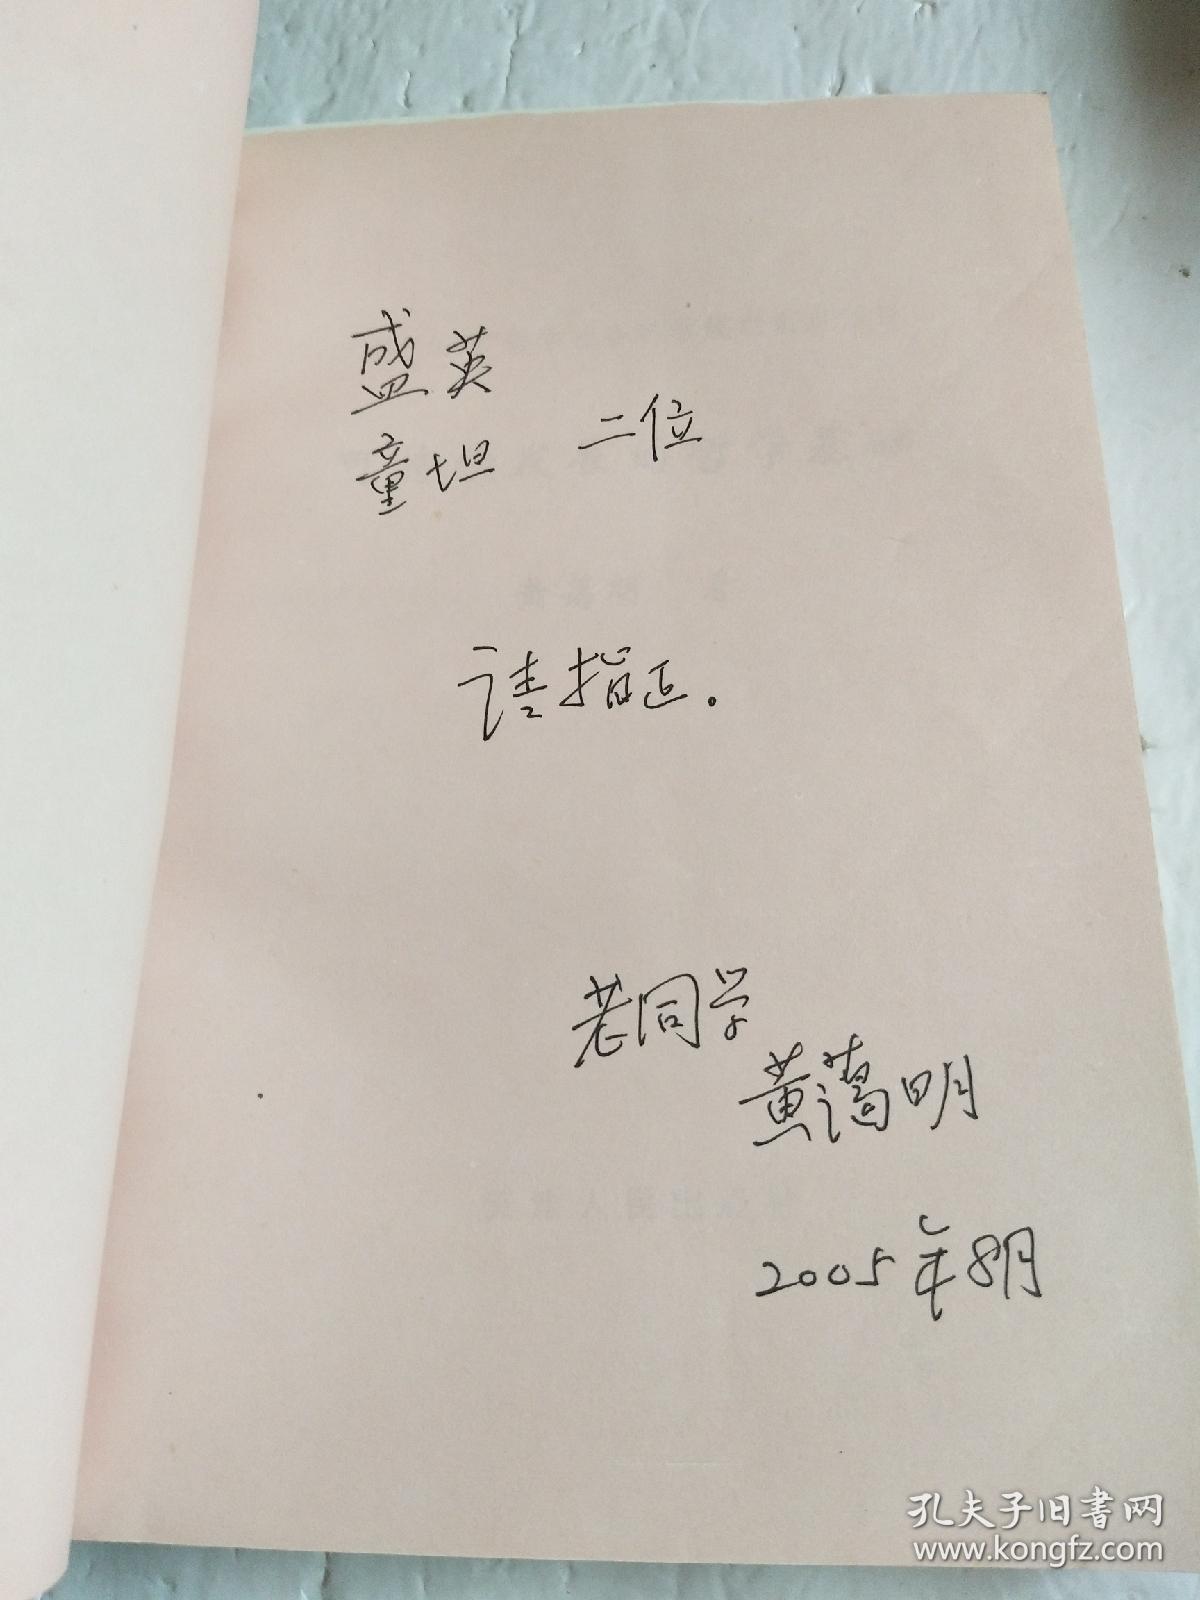 盛英
童坦 二位
请指正。
老同学
黄蔼明
2005年8月
孔夫子旧书网
www.kongfz.com